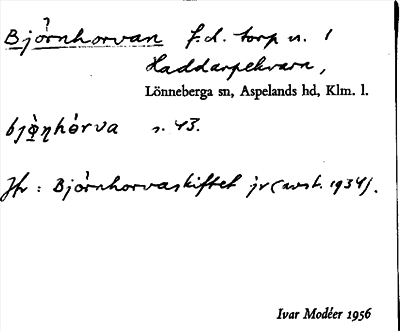 Björnhorvan f.d. torp u. 1
Haddarpekvarn,
Lönneberga sn, Aspelands hd, Klm. l.
bjö̀ṇhorva s. 43.
Jfr : Björnhorvaskiftet jr (avst. 1934).
Ivar Modéer 1956